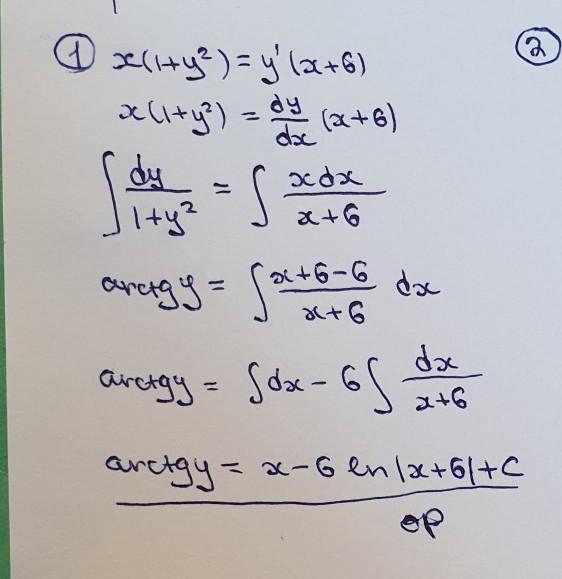 ① x(1+y²) = y'(x+6)
②
x(1+y²) = dy/dx (x+6)
∫ dy/(1+y²) = ∫ xdx/(x+6)
arctgy = ∫ (x+6-6)/(x+6) dx
arctgy = ∫dx - 6∫ dx/(x+6)
arctgy = x - 6 ln|x+6| + C
op